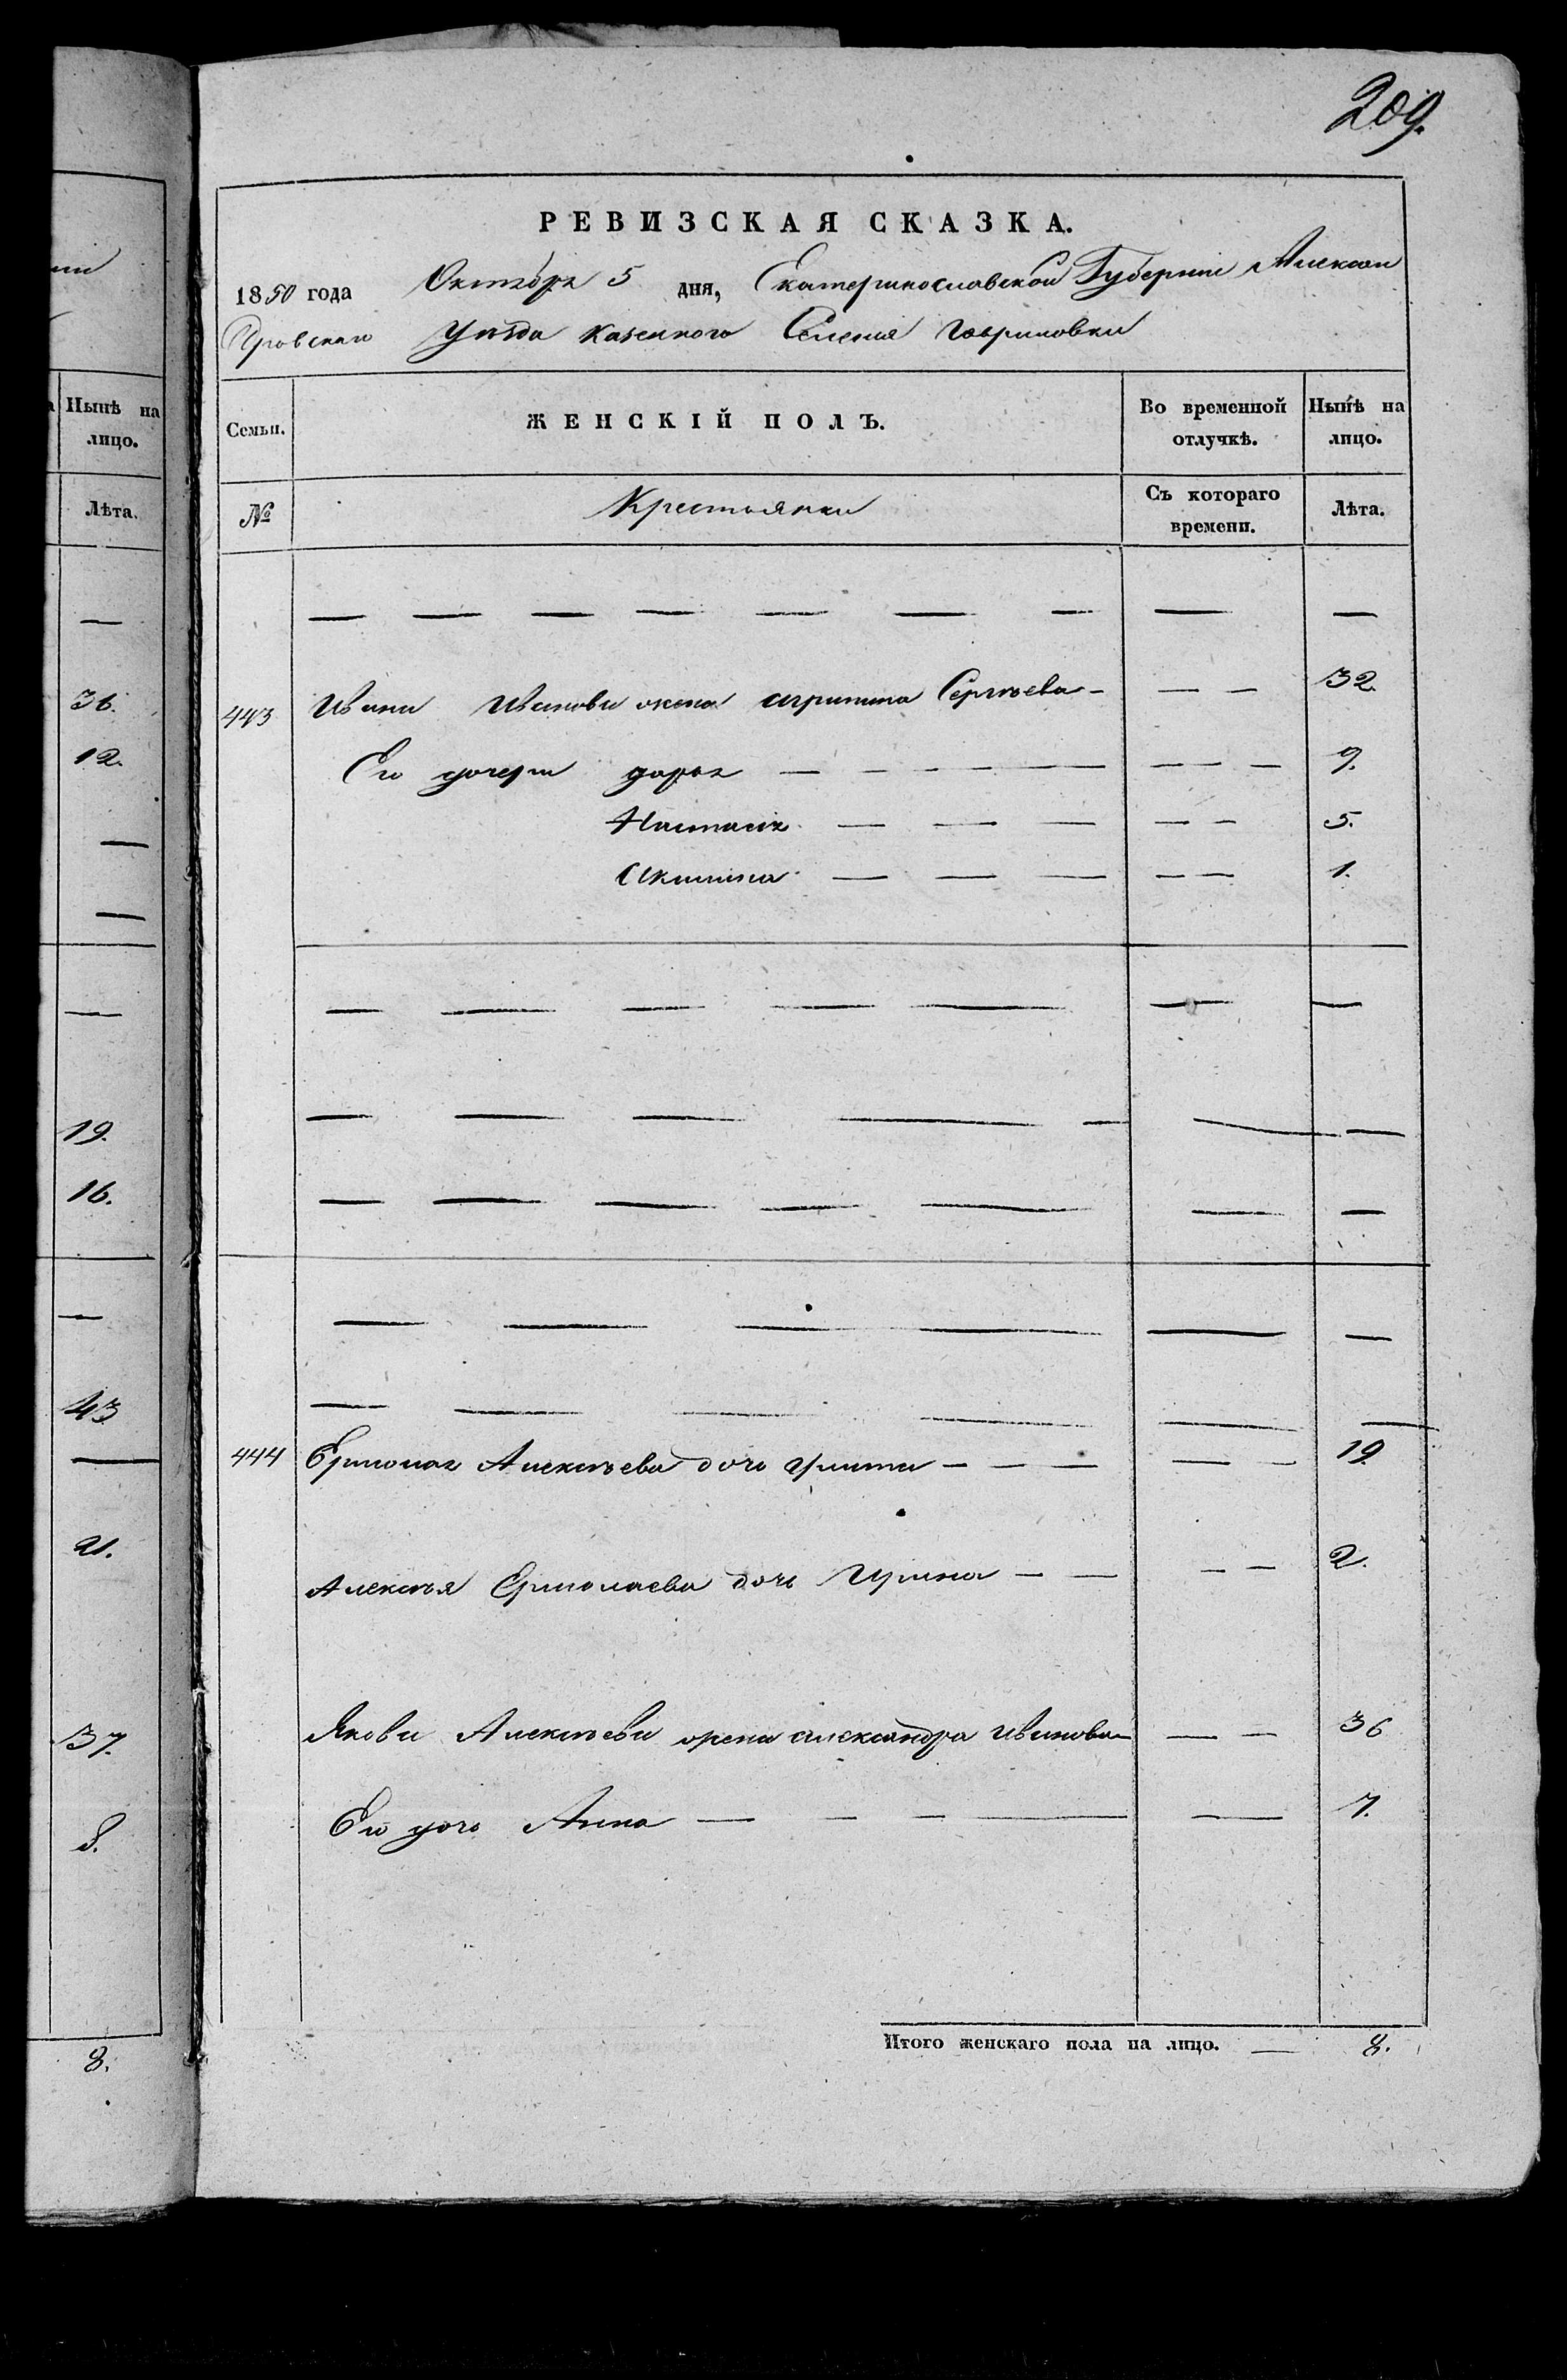 209.
РЕВИЗСКАЯ СКАЗКА.
1850 года Октября 5 дня, Екатеринославской Губернии Алексан
дровскаго Уѣзда казенного Селения Гавриловки
Нынѣ на лицо.
Семьи.
ЖЕНСКІЙ ПОЛЪ.
Во временной отлучкѣ.
Нынѣ на лицо.
Лѣта.
№
Крестьянки
Съ котораго времени.
Лѣта.
— — — — — — — — —
36.
443 Ивана Иванова жена агрипина Сергѣева — — — 32
12.
Его дочери дарья — — — — — — — 9.
Настасія — — — — — 5.
Акилина — — — — — 1.
— — — — — — —
— — — — — — —
19.
16.
— — — — — — —
— — — — — —
43
— — — — — —
444 Ермолая Алексѣева дочь Улита — — — — — 19.
21.
Алексѣя Ермолаева дочь Ирина — — — — 2.
37.
Якова Алексѣева жена александра Иванова — — 36
8.
Его дочь Анна — — — — — 7.
8.
Итого женскаго пола на лицо. — 8.